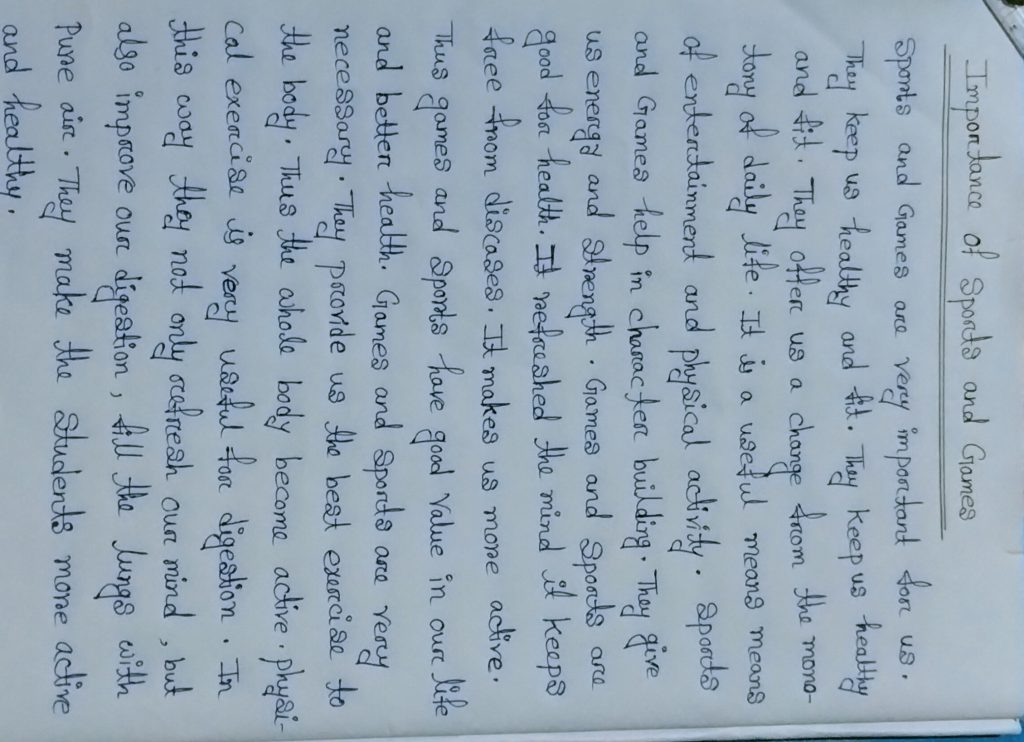 Importance of Sports and Games
Sports and Games are very important for us.
They keep us healthy and fit. They keep us healthy
and fit. They offer us a change from the mono-
tony of daily life. It is a useful means means
of entertainment and physical activity. Sports
and Games help in character building. They give
us energy and strength. Games and Sports are
good for health. It refreshed the mind it keeps
free from discases. It makes us more active.
Thus games and sports have good value in our life
and better health. Games and sports are very
necessary. They provide us the best exercise to
the body. Thus the whole body become active. physi-
cal exercise is very useful for digestion. In
this way they not only refresh our mind, but
also improve our digestion, fill the lungs with
pure air. They make the students more active
and healthy.